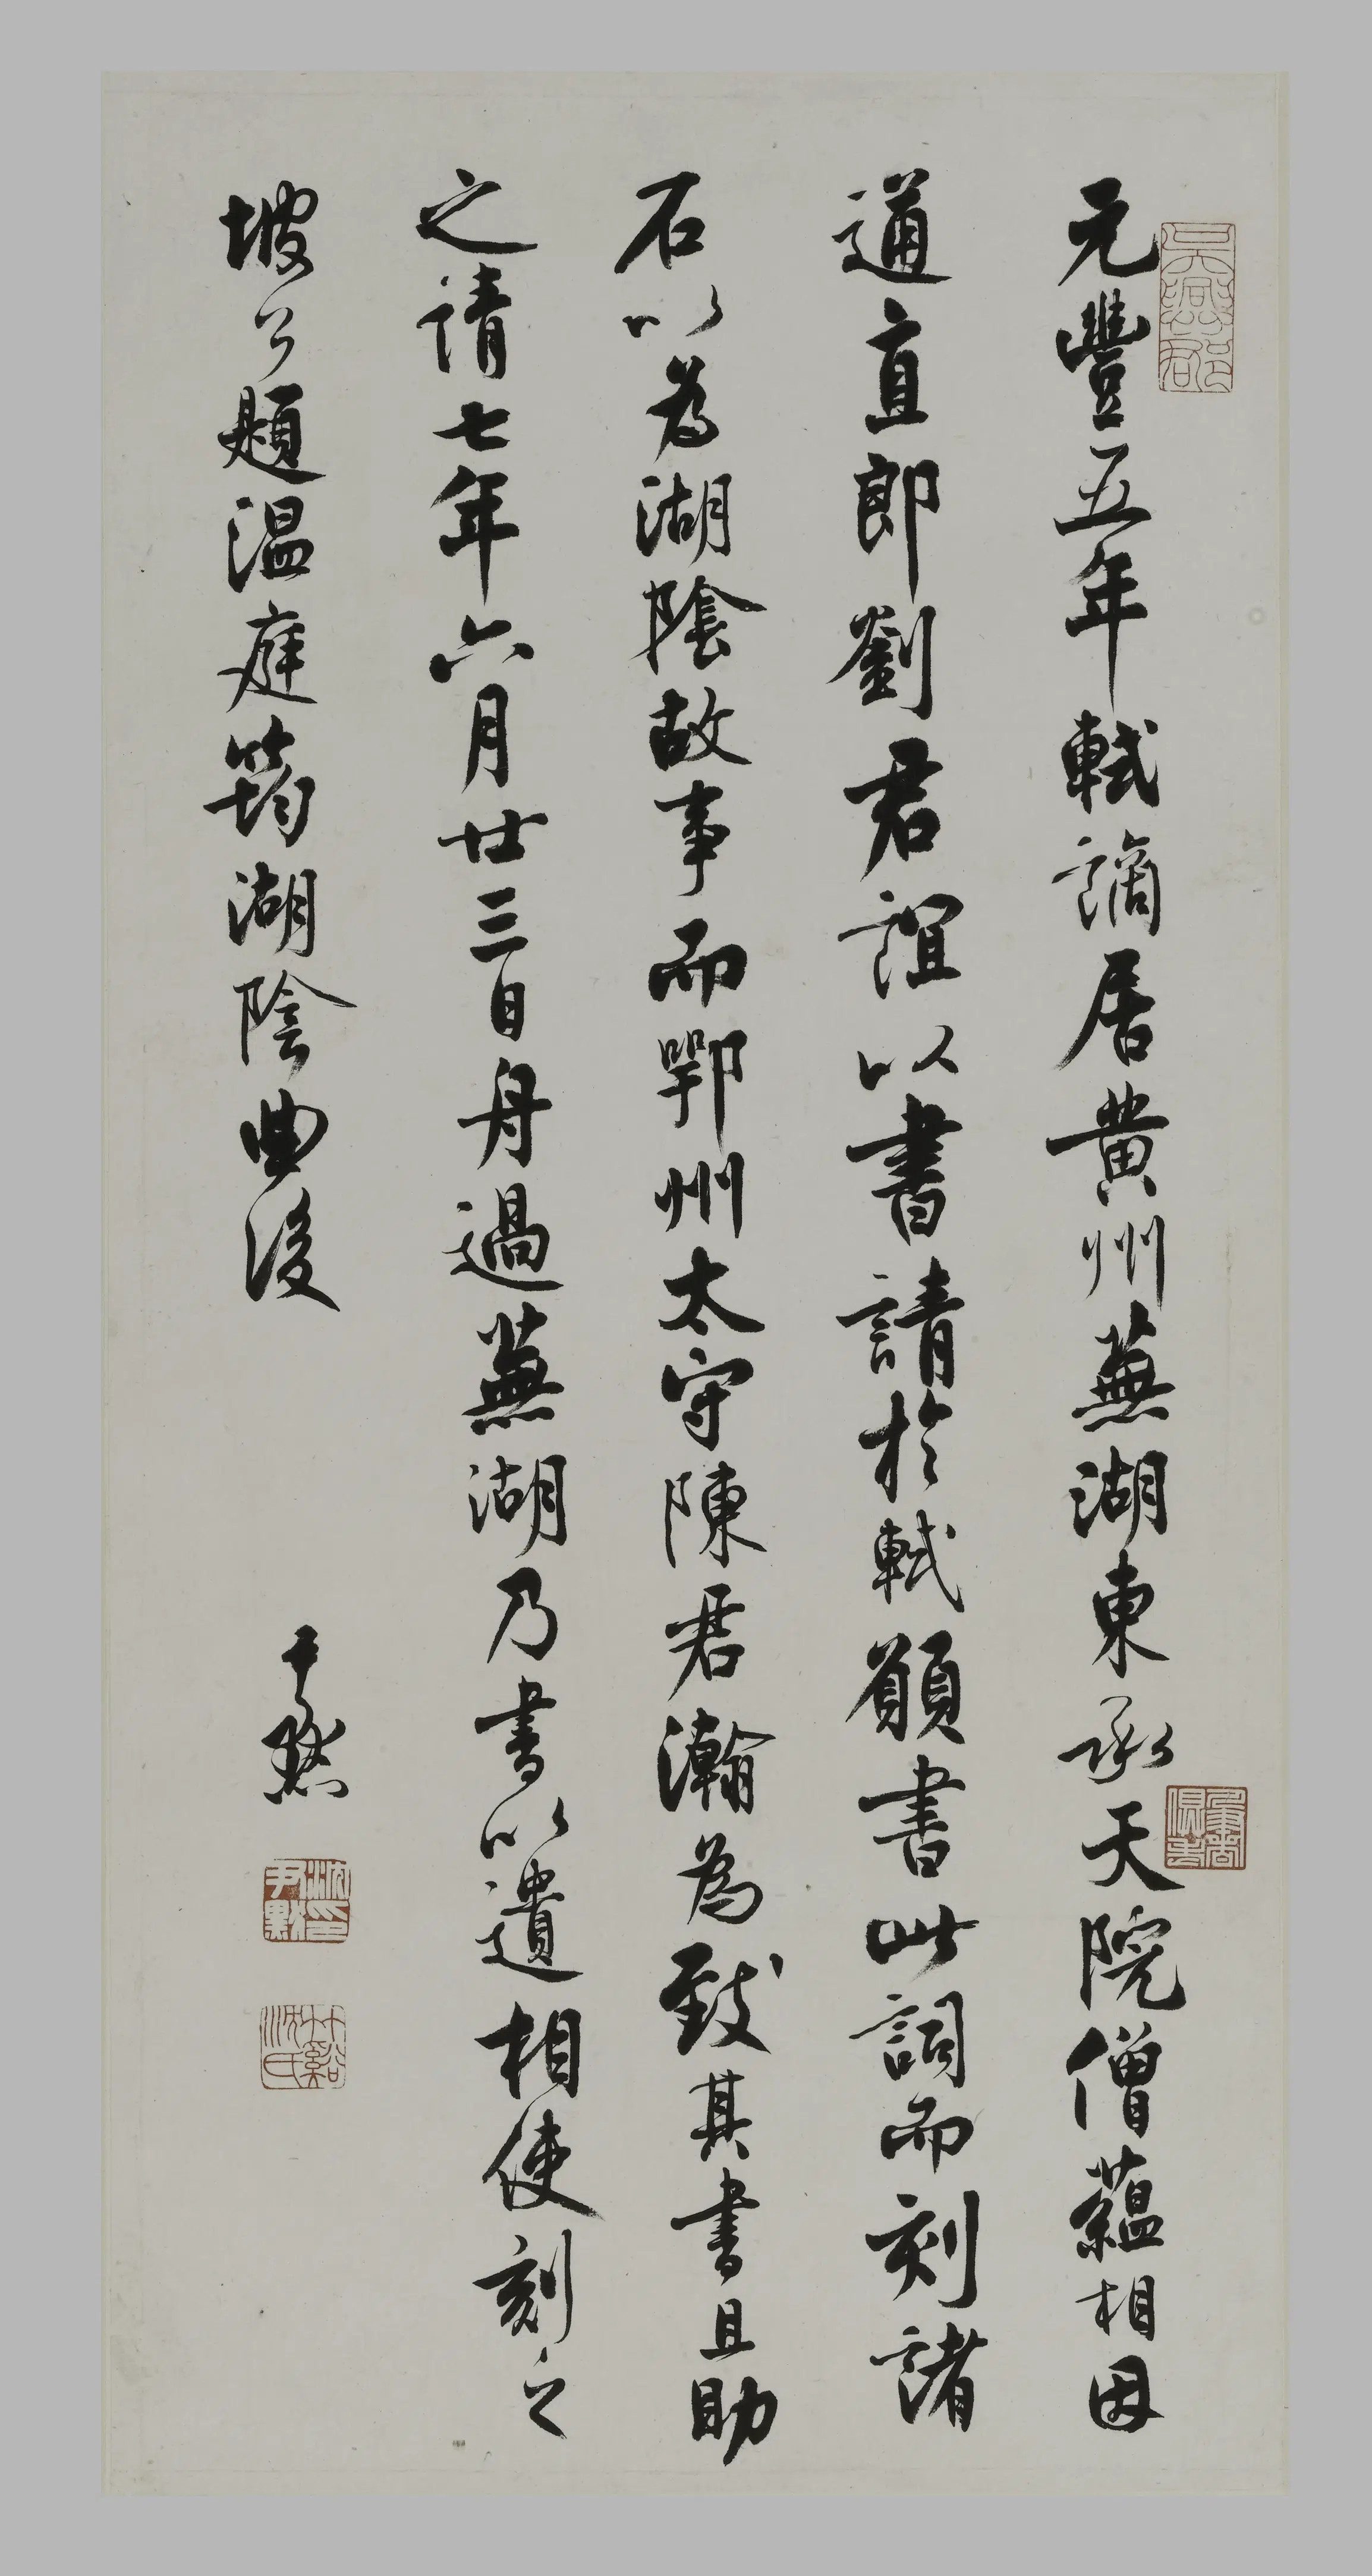 元豐五年軾謫居黄州蕪湖東承天院僧藴相因
通直郎劉君誼以書請於軾願書此詞而刻諸
石以為湖陰故事而鄂州太守陳君瀚為致其書且助
之請七年六月廿三日舟過蕪湖乃書以遺相使刻之
坡公題温庭筠湖陰曲後
尹默
沈尹默印
竹谿沈氏